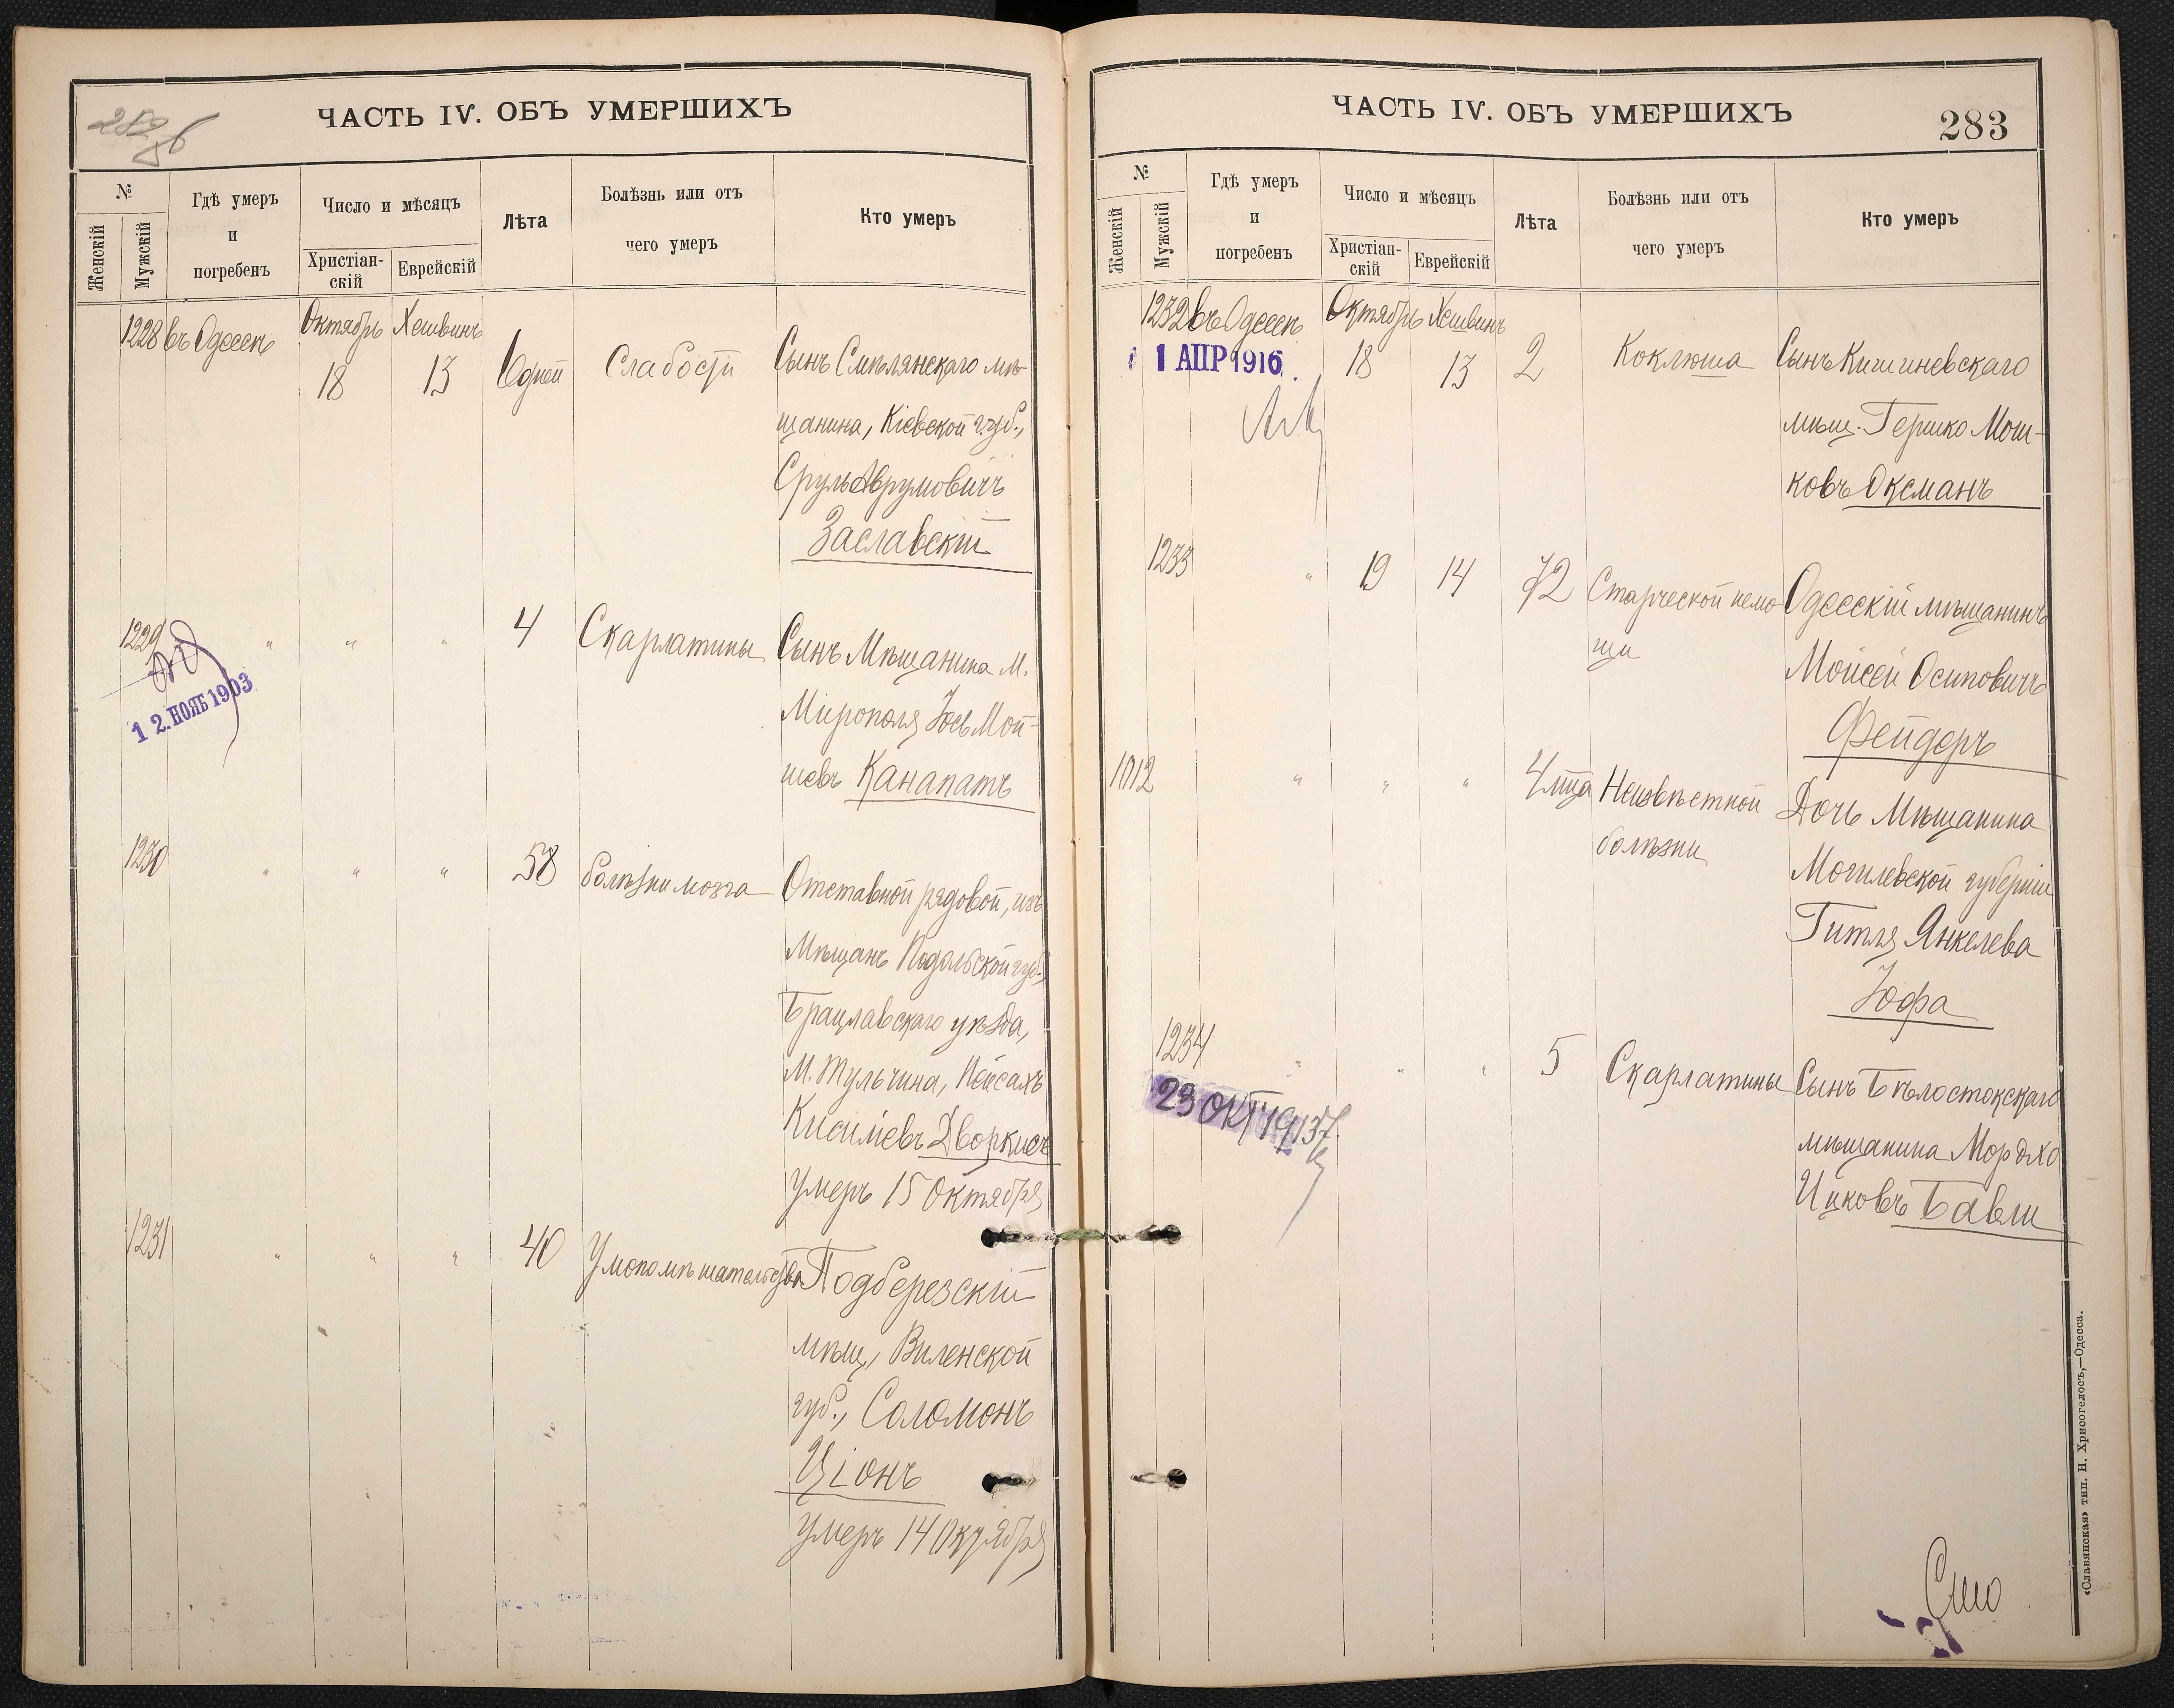 ЧАСТЬ IV. ОБЪ УМЕРШИХЪ
№
Женскій
Мужскій
Гдѣ умеръ
и
погребенъ
Число и мѣсяцъ
Христіан-
скій
Еврейскій
Лѣта
Болѣзнь или отъ
чего умеръ
Кто умеръ
1228 въ Одессѣ Октябрь Хешвинъ
18 13 6 дней Слабости Сынъ Смѣлянскаго мѣ-
щанина, Кіевской губ.,
Сруль Аврумовичъ
Заславскій
1229 " " " 4 Скарлатины Сынъ Мѣщанина м.
Мирополя Іось Мой-
шевъ Канапатъ
12. НОЯБ 1903
1230 " " " 58 болѣзни мозга Отставной рядовой, изъ
Мѣщанъ Подольской губ.,
Брацлавскаго уѣзда,
М. Тульчина, Пейсахъ
Кисилевъ Дворкисъ
умеръ 15 Октября
1231 " " " 40 Умопомѣшательства Подберезскій
мѣщ, Виленской
губ., Соломонъ
Ціонъ
умеръ 14 Октября
ЧАСТЬ IV. ОБЪ УМЕРШИХЪ
283
№
Женскій
Мужскій
Гдѣ умеръ
и
погребенъ
Число и мѣсяцъ
Христіан-
скій
Еврейскій
Лѣта
Болѣзнь или отъ
чего умеръ
Кто умеръ
1232 въ Одессѣ Октябрь Хешвинъ
18 13 2 Коклюша Сынъ Кишиневскаго
мѣщ. Гершко Мош-
ковъ Оксманъ
1 АПР 1916
1233 " 19 14 72 Старческой немо Одесскій мѣщанинъ
щи Мойсей Осиповичъ
Фейдеръ
1012 " " " 4 мца Неизвѣстной Дочь Мѣщанина
болѣзни Могилевской губерніи
Гитля Янкелева
Іоффа
1234 " " " 5 Скарлатины Сынъ Бѣлостокскаго
мѣщанина Мордхо
Ицковъ Бавли
23 ОКТ 1913
«Славянская» тип. Н. Хрисогелосъ,—Одесса.